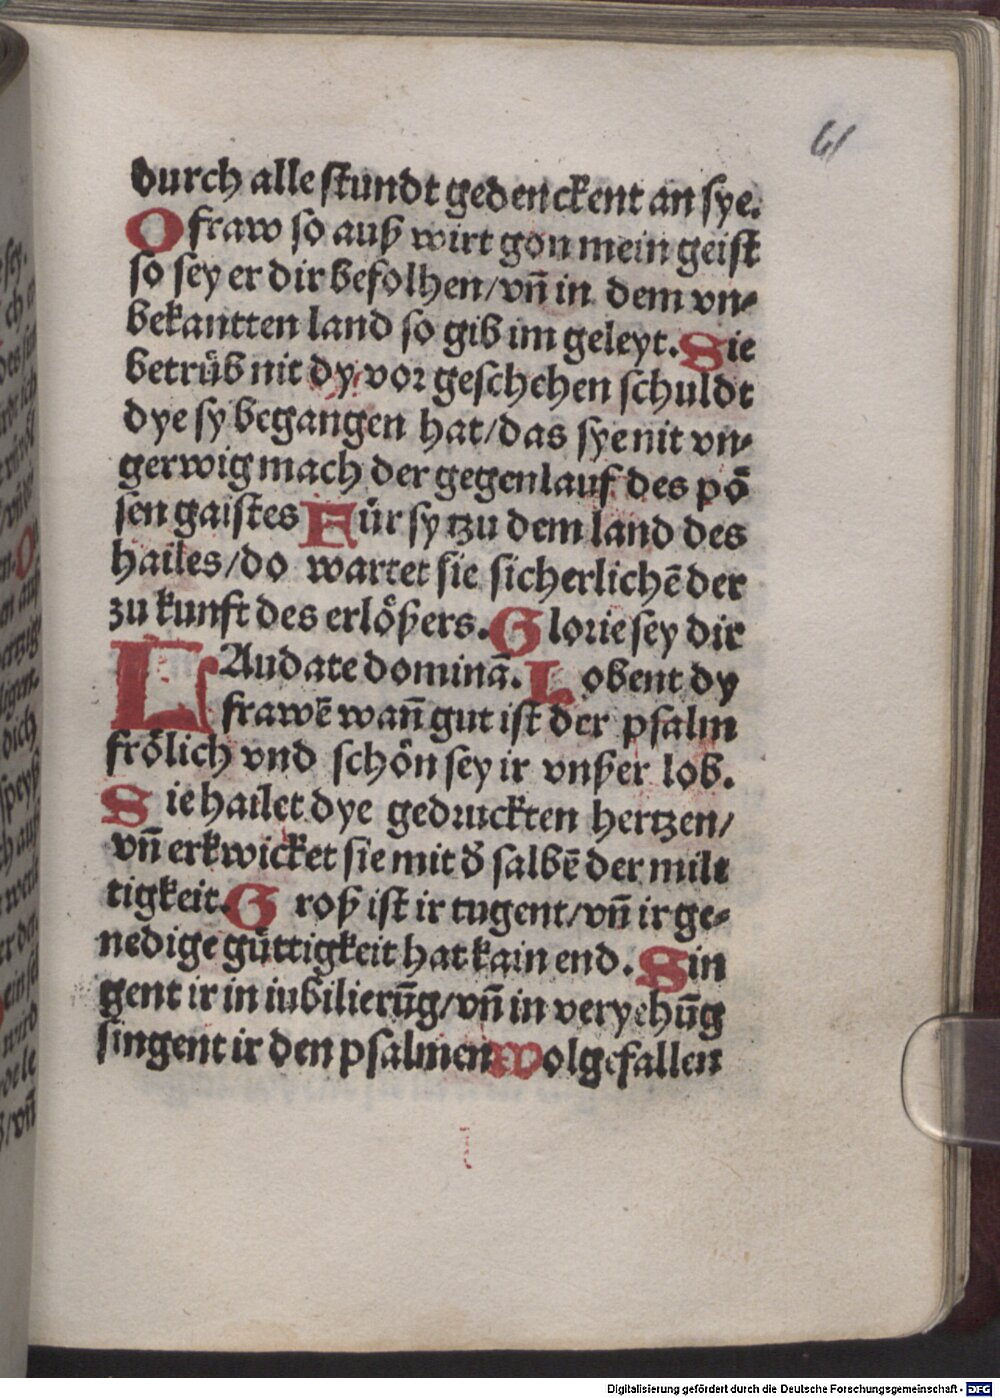 61
durch alle stundt gedenckent an sye.
O fraw so auß wirt gon mein geist
so sey er dir befolhen/vn̄ in dem vn⸗
bekantten land so gib im geleyt. Sie
betrüb nit dy vor geschehen schuldt
dye sy begangen hat/das sye nit vn⸗
gerwig mach der gegenlauf des pō
sen gaistes Für sy tzu dem land des
hailes/do wartet sie sicherlichē der
zu kunft des erlößers. Glorie sey dir
LAudate dominā. Lobent dy
frawē wan̄ gut ist der psalm
frölich vnd schön sey ir vnßer lob.
Sie hailet dye gedruckten hertzen/
vn̄ erkwicket sie mit d̄ salbē der milt
tigkeit. Groß ist ir tugent/vn̄ ir ge⸗
nedige güttigkeit hat kain end. Sin
gent ir in iubilierūg/vn̄ in veryehūg
singent ir den psalmen wolgefallen
Digitalisierung gefördert durch die Deutsche Forschungsgemeinschaft - DFG